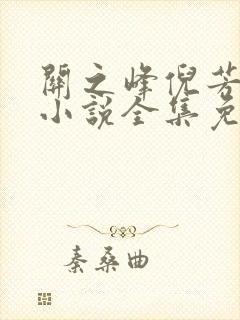 關之峰倪芳
小說全集免
秦桑曲